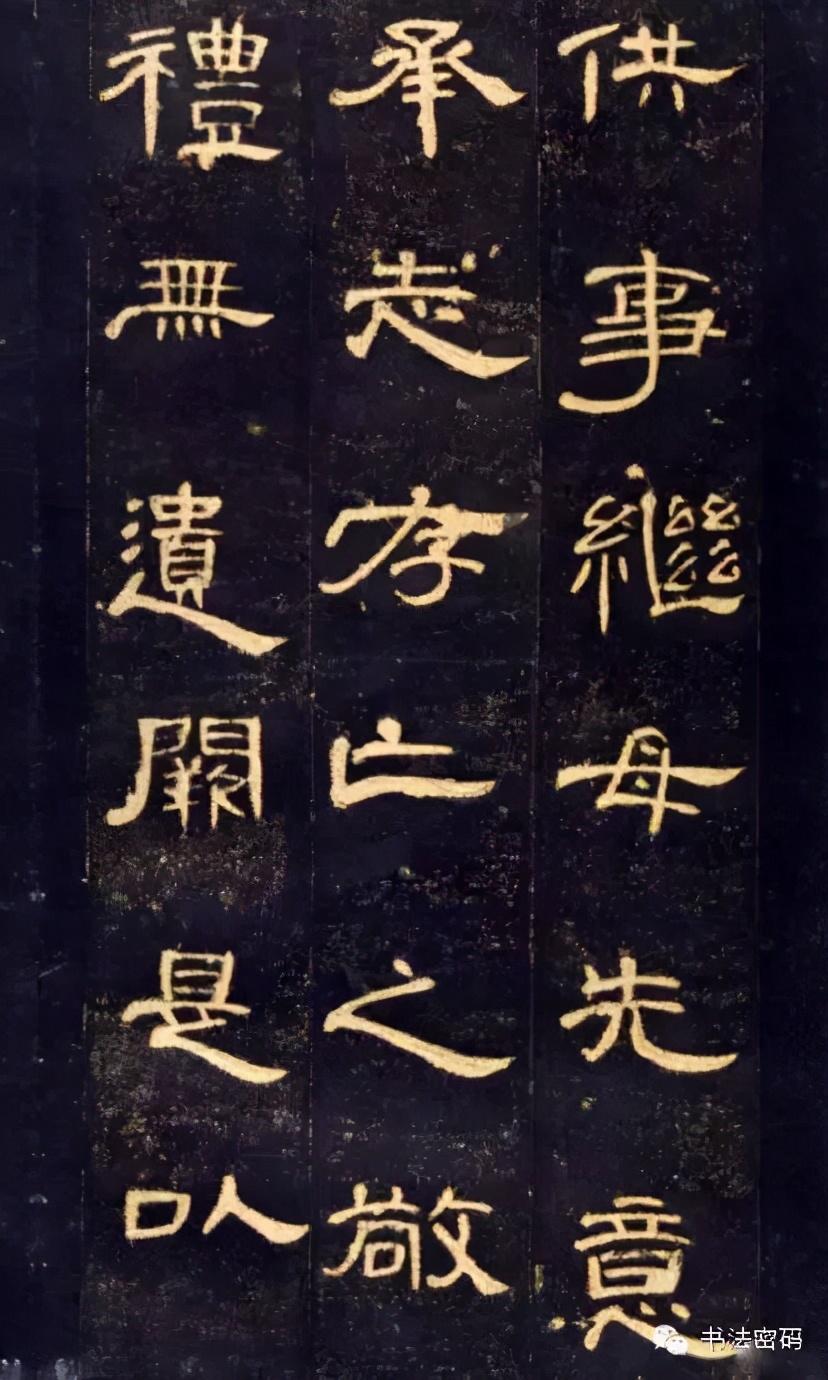 供事繼母先意
承志存亡之敬
禮無遺闕是以
书法密码